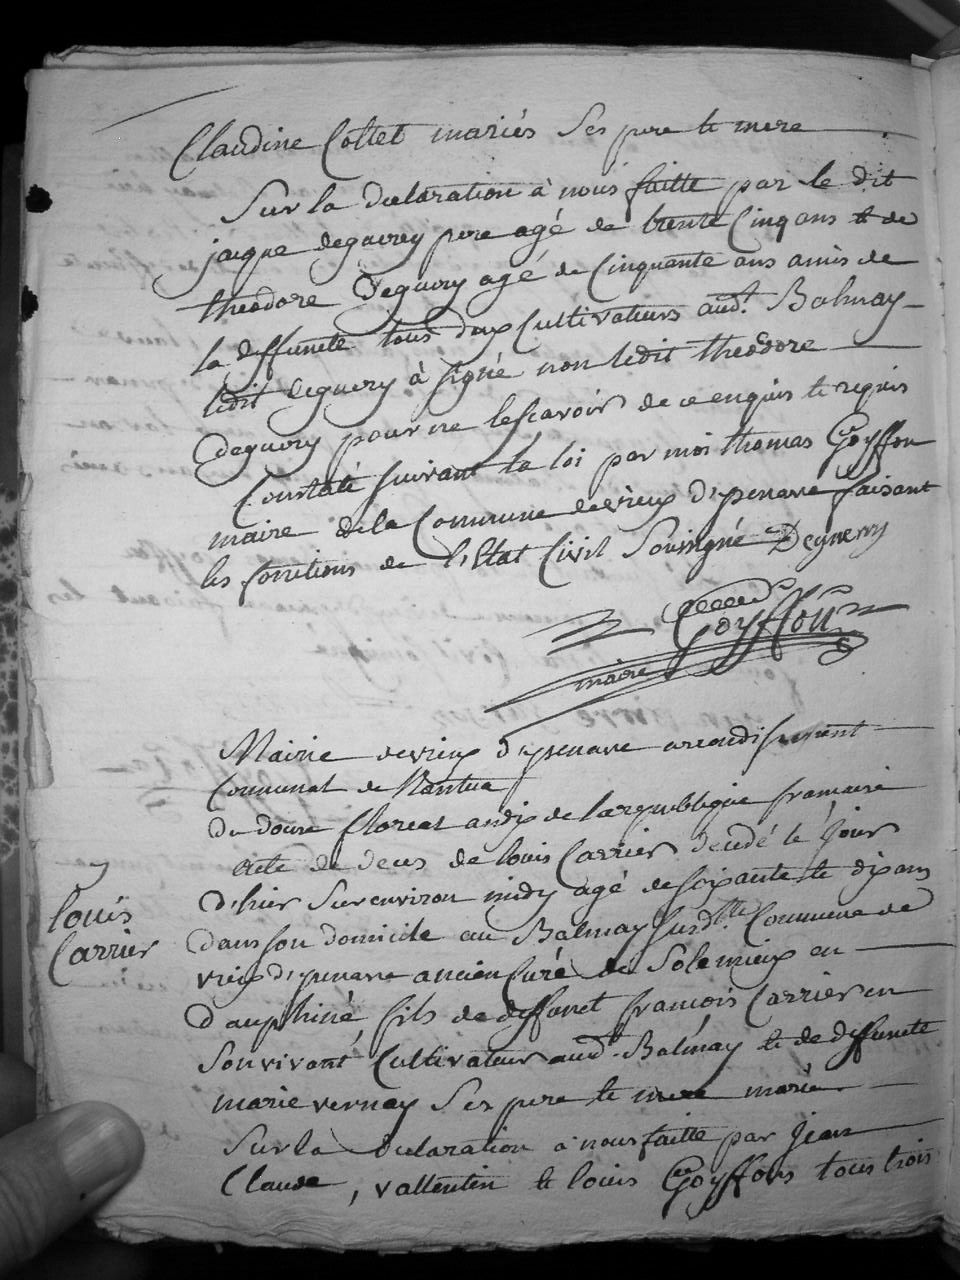 Claudine Collet mariés Ses pere te mere
Sur la declaration à nous faitte par le dit
jacque deguerry pere agé de trente Cinq ans te de
theodore Deguerry agé de Cinquante ans amis de
la deffuncte tous deux Cultivateurs aud.t Balmay
ledit deguerry à signé non ledit theodore
deguerry pour ne le scavoir de ce enquis te requis
Constaté suivant la loi par moi thomas Goyffon
maire de la Commune de vieux d'isenave faisant
les fonctions de l'Etat Civil Soussigné Deguerry
Goyffon
maire
Mairie de vieux d'isenave arrondissement
Communal de Nantua
du douze floreal an dix de la republique francaise
acte de deces de louis Carrier decedé le jour
d'hier Sur environ midy agé de soixante te dix ans
dans son domicile au Balmay susd.tte Commune de
vieux d'isenave ancien Curé de Solemieux en
dauphiné fils de deffunct francois Carrier en
Son vivant Cultivateur aud.t Balmay te de deffuncte
marie vernay Ses pere te mere mariés
Sur la declaration à nous faitte par jean
Claude, vallentin te louis Goyffons tous trois
louis
Carrier